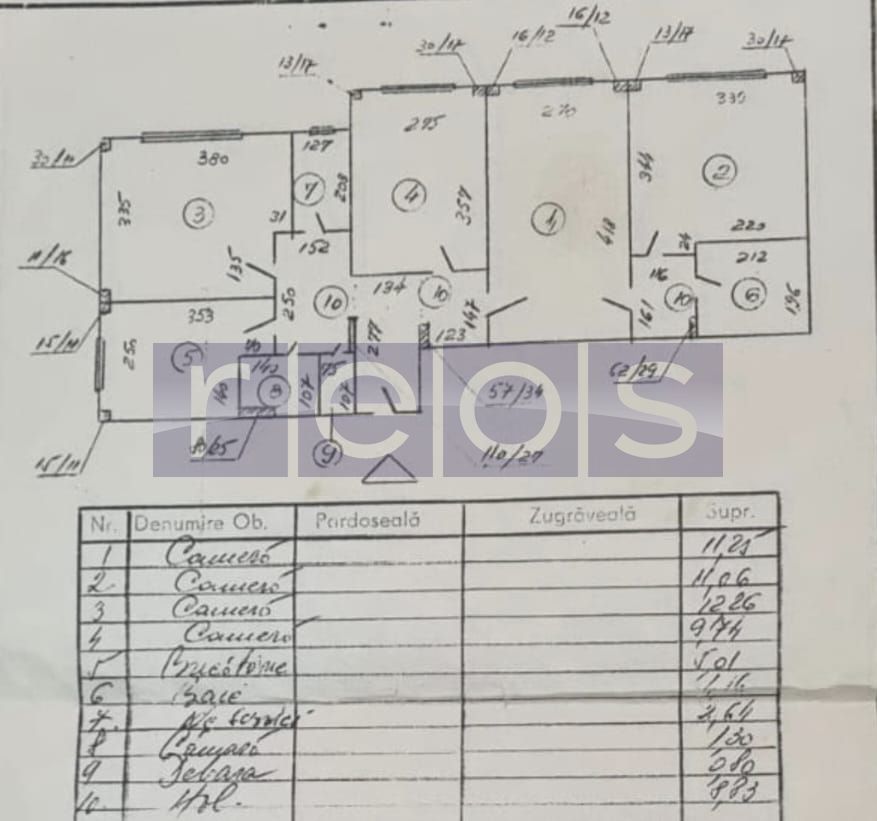 16/12
30/17 16/12 13/17 30/17
13/17
330
295 270
127
380
344 2
7 208 4 357
335 3 31 1 418
152 24 220
135 116 212
134
250 10 10 147 161 10 6 196
353 277 123
250 5 70
140 75 62/29
140 8 107 107 57/34
reos
9 110/27
15/11
Nr. Denumire Ob. Pardoseală Zugrăveală Supr.
1 Cameră 11,25
2 Cameră 11,06
3 Cameră 12,26
4 Cameră 9,74
5 Bucătărie 5,01
6 Baie
7. 2,64
8 Cămară 1,30
9 Debara 0,80
10. Hol.